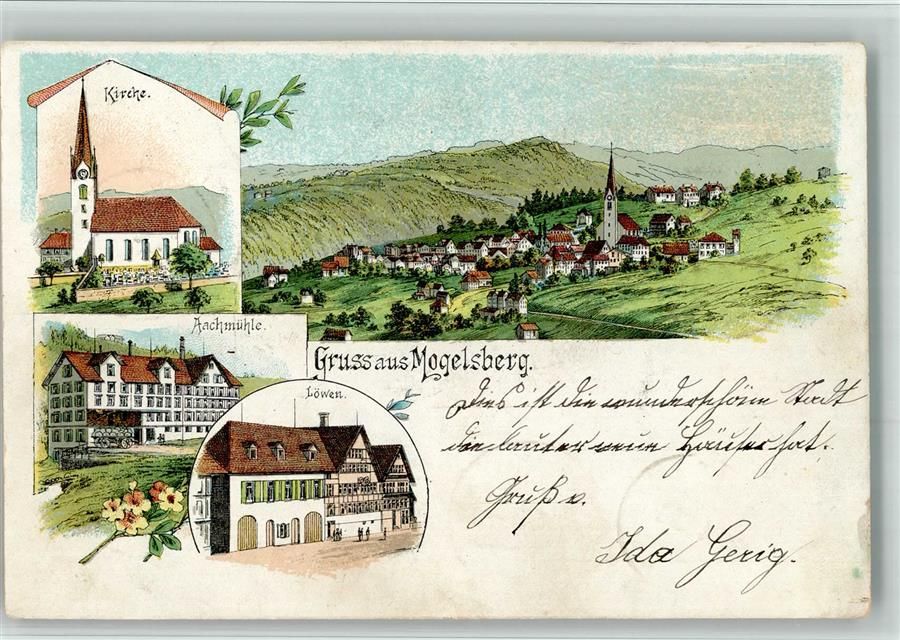 Kirche.
Aachmühle.
Löwen.
Gruss aus Mogelsberg.
Dies ist die wunderschöne Stadt
die lauter neue Häuser hat.
Gruß v.
Ida Gerig.